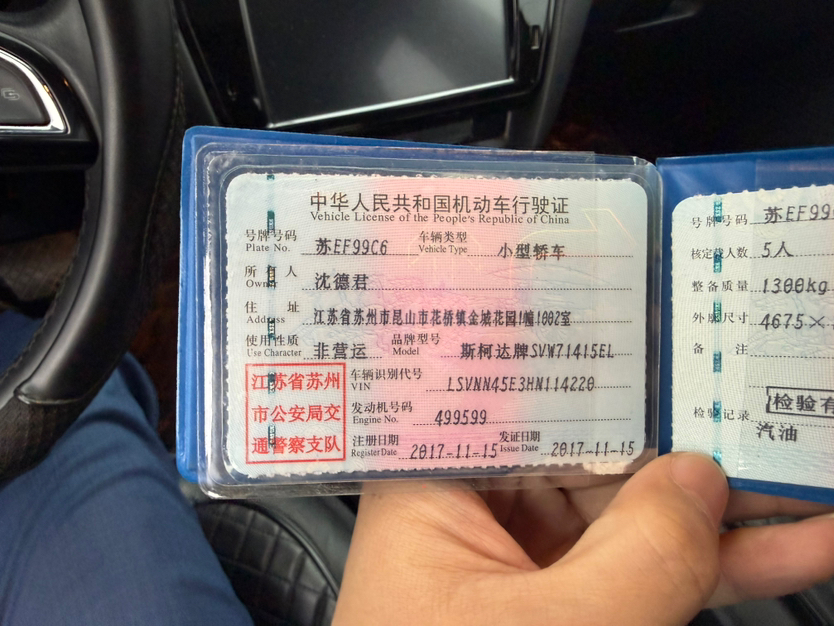 中华人民共和国机动车行驶证
Vehicle License of the People's Republic of China
号牌号码 苏EF99C6 车辆类型 小型轿车
Plate No. Vehicle Type
所有人 沈德君
Owner
住址 江苏省苏州市昆山市花桥镇金城花园1幢1002室
Address
使用性质 非营运 品牌型号 斯柯达牌SVW71415EL
Use Character Model
江苏省苏州
市公安局交
通警察支队
车辆识别代号 LSVNN45E3HN114220
VIN
发动机号码 499599
Engine No.
注册日期 2017-11-15 发证日期 2017-11-15
Register Date Issue Date
号牌号码 苏EF99
核定载人数 5人
整备质量 1300kg
外廓尺寸 4675×
备注
检验有
检验记录
汽油